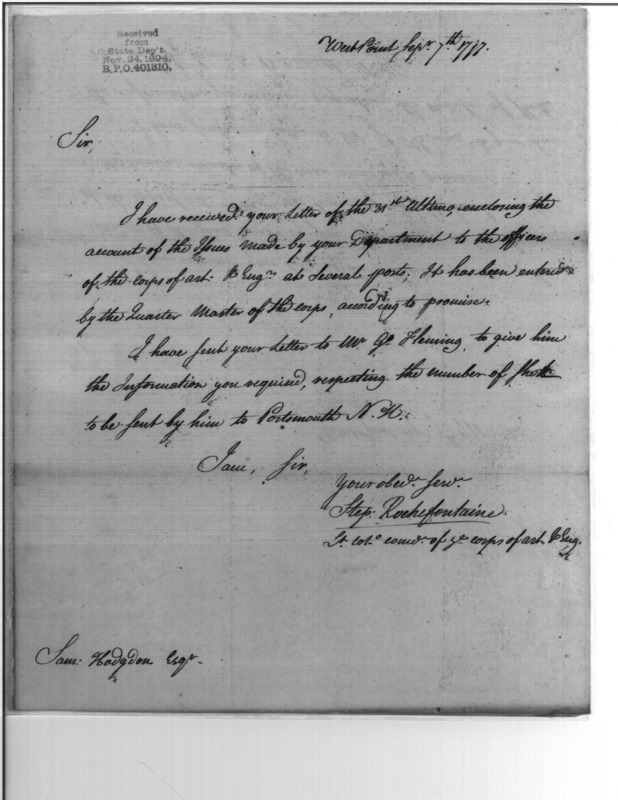 Received
from
State Dep't.
Nov. 24. 1894.
R.P.O. 401310.
West Point Sepr. 7th 1797.
Sir,
I have received your Letter of the 31st Ultimo, enclosing the
account of the Issues made by your Department to the officers
of the corps of art. & Engrs at several posts; It has been entered
by the Quarter Master of the corps, according to promise.
I have sent your Letter to Mr. Go Fleming, to give him
the Information you required, respecting the number of shot
to be sent by him to Portsmouth N. H.
I am, Sir,
Your obedt. servt.
Step: Rochefontaine.
Lt. Colo. comdt. of ye corps of art. & Eng.
Sam: Hodgdon Esqr.